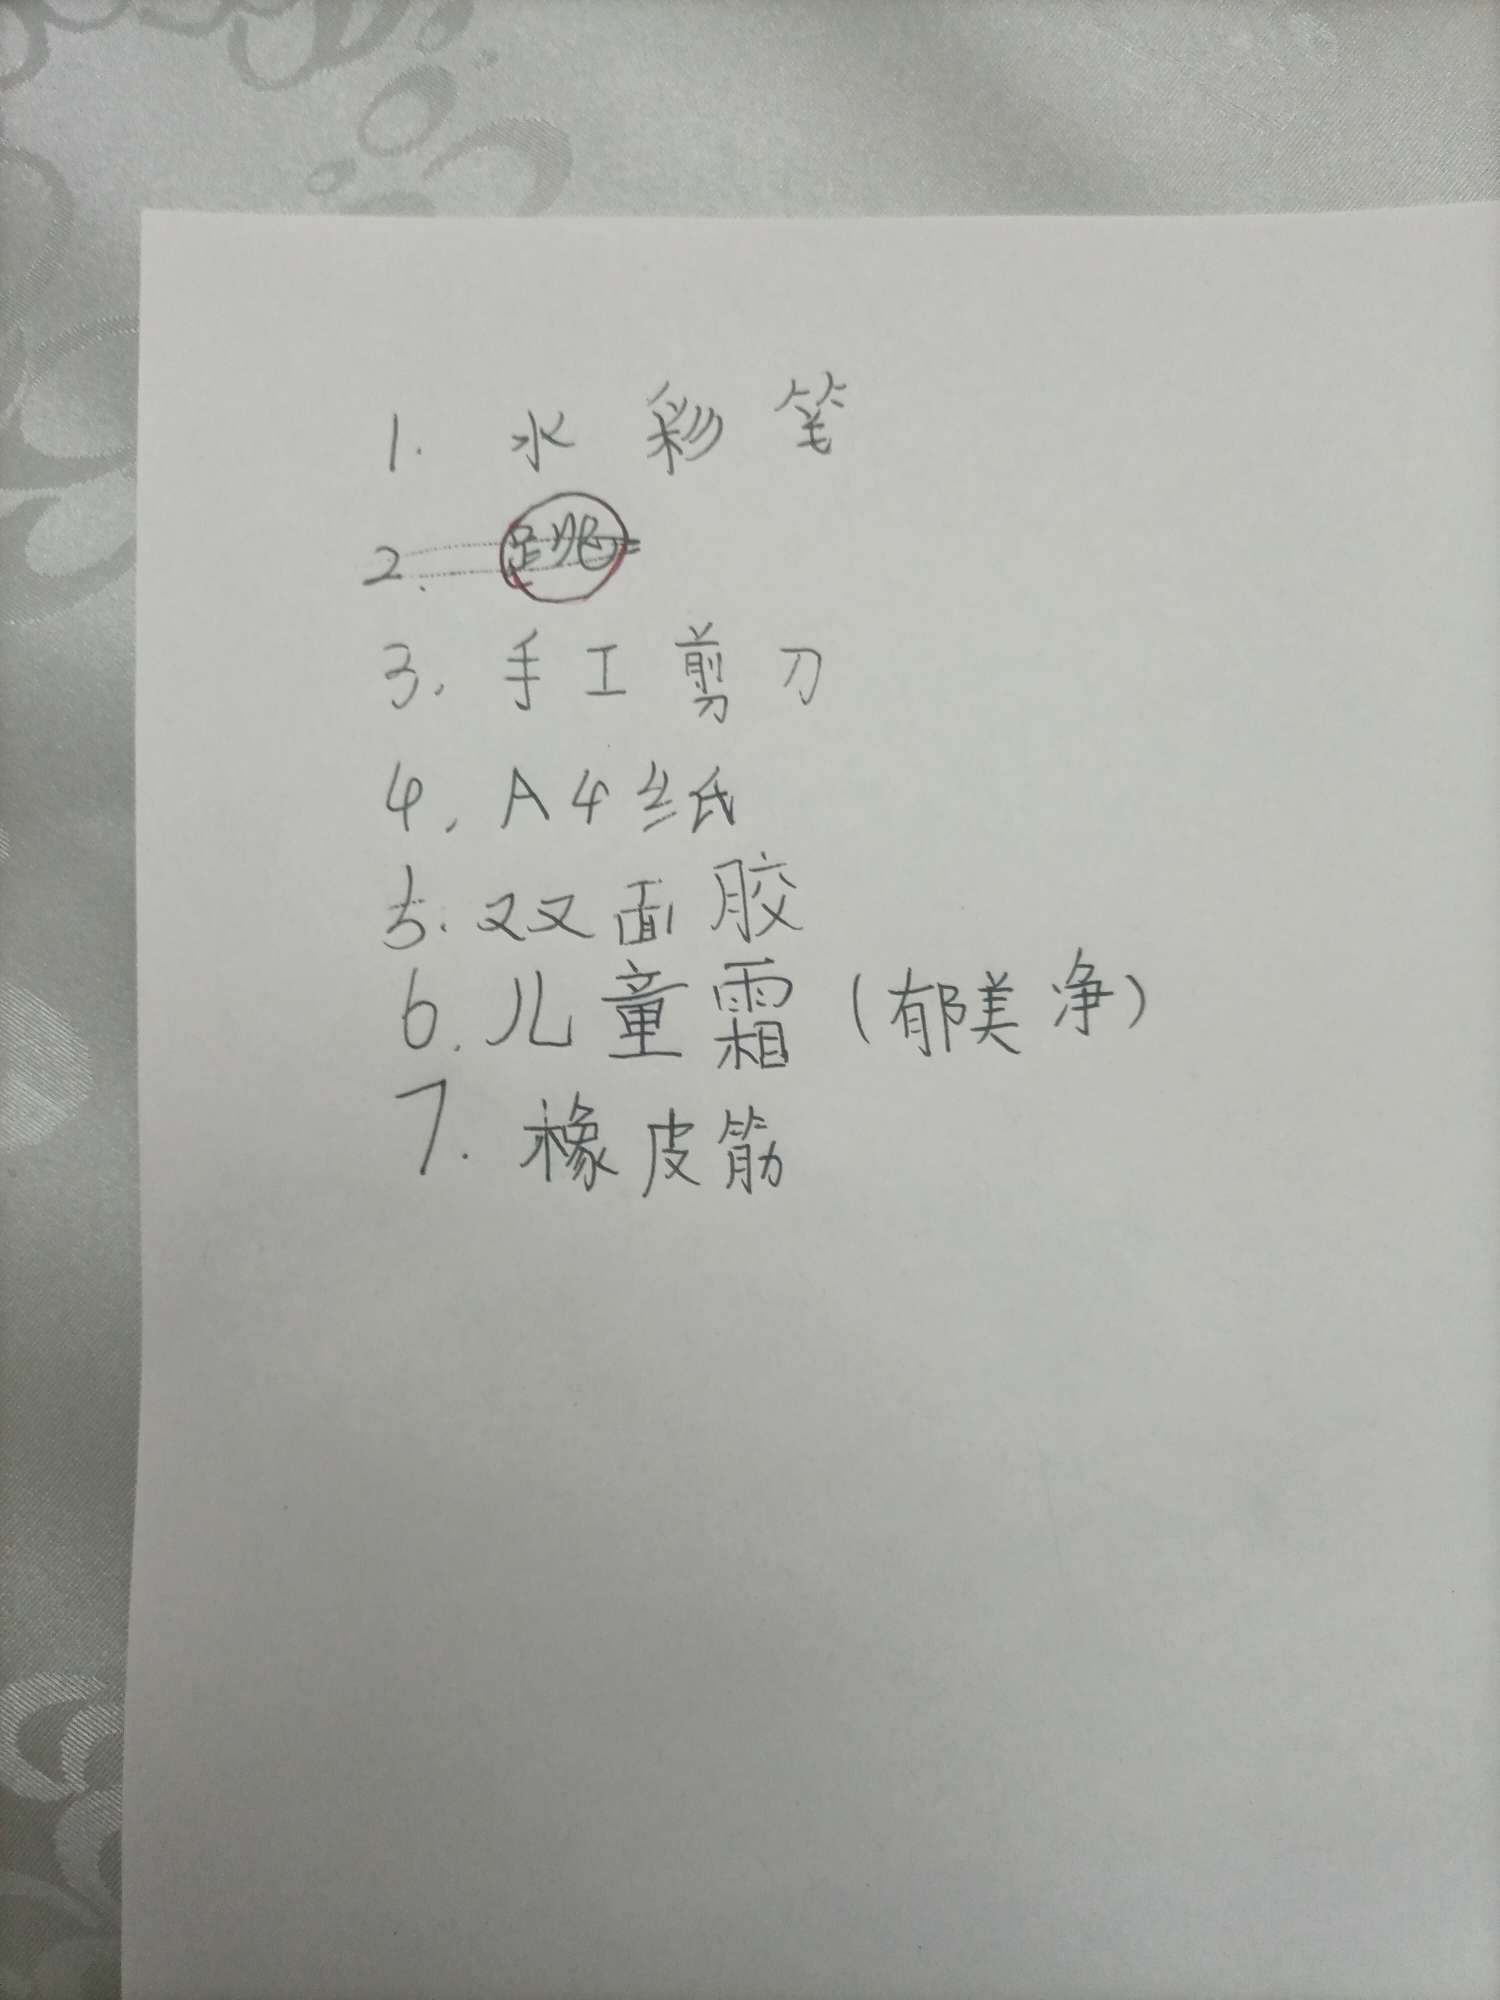 1. 水彩笔
2. 跳
3. 手工剪刀
4. A4纸
5. 双面胶
6. 儿童霜(郁美净)
7. 橡皮筋